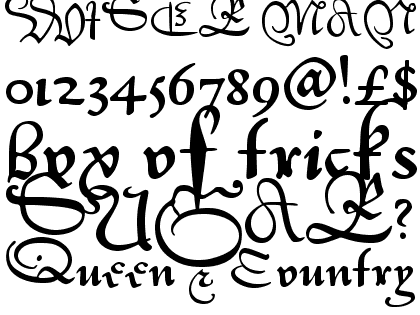 MAN
0123456789@!£$
Box of tricks
SUGAR?
Queen & Country